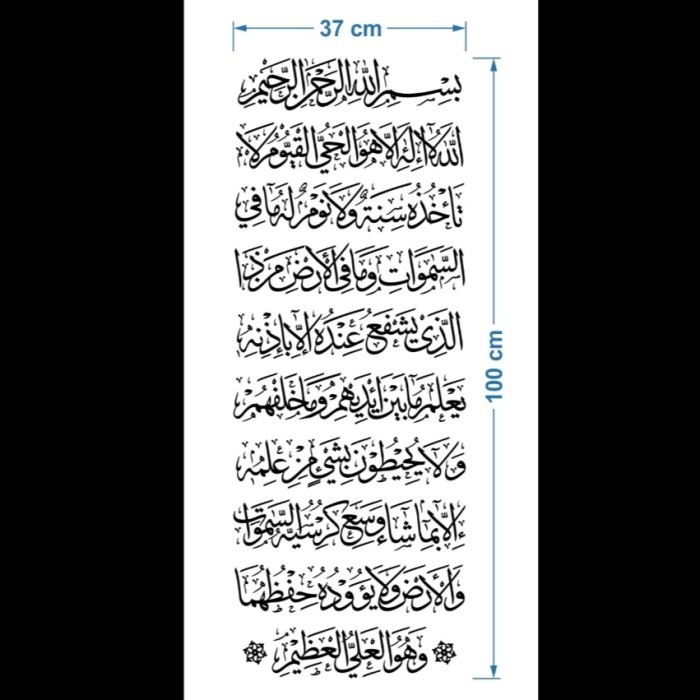 37 cm
بِسْمِ اللهِ الرَّحْمٰنِ الرَّحِيْمِ
اَللهُ لَا اِلٰهَ اِلَّا هُوَ الْحَيُّ الْقَيُّوْمُ لَا
تَأْخُذُهُ سِنَةٌ وَلَا نَوْمٌ لَهُ مَا فِي
السَّمٰوَاتِ وَمَا فِي الْاَرْضِ مَنْ ذَا
الَّذِيْ يَشْفَعُ عِنْدَهُ اِلَّا بِاِذْنِهِ
يَعْلَمُ مَا بَيْنَ اَيْدِيْهِمْ وَمَا خَلْفَهُمْ
وَلَا يُحِيْطُوْنَ بِشَيْءٍ مِنْ عِلْمِهِ
اِلَّا بِمَا شَاءَ وَسِعَ كُرْسِيُّهُ السَّمٰوَاتِ
وَالْاَرْضَ وَلَا يَؤُوْدُهُ حِفْظُهُمَا
وَهُوَ الْعَلِيُّ الْعَظِيْمُ
100 cm